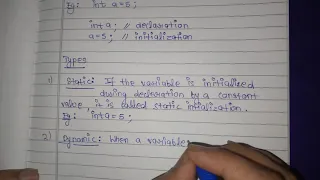 Eg: int a=5;
int a; // declaration
a=5; // initialization
Types
1) Static: If the variable is initialised
during declaration by a constant
value, it is called static intialization.
Eg: int a=5;
2) Dynamic: When a variable